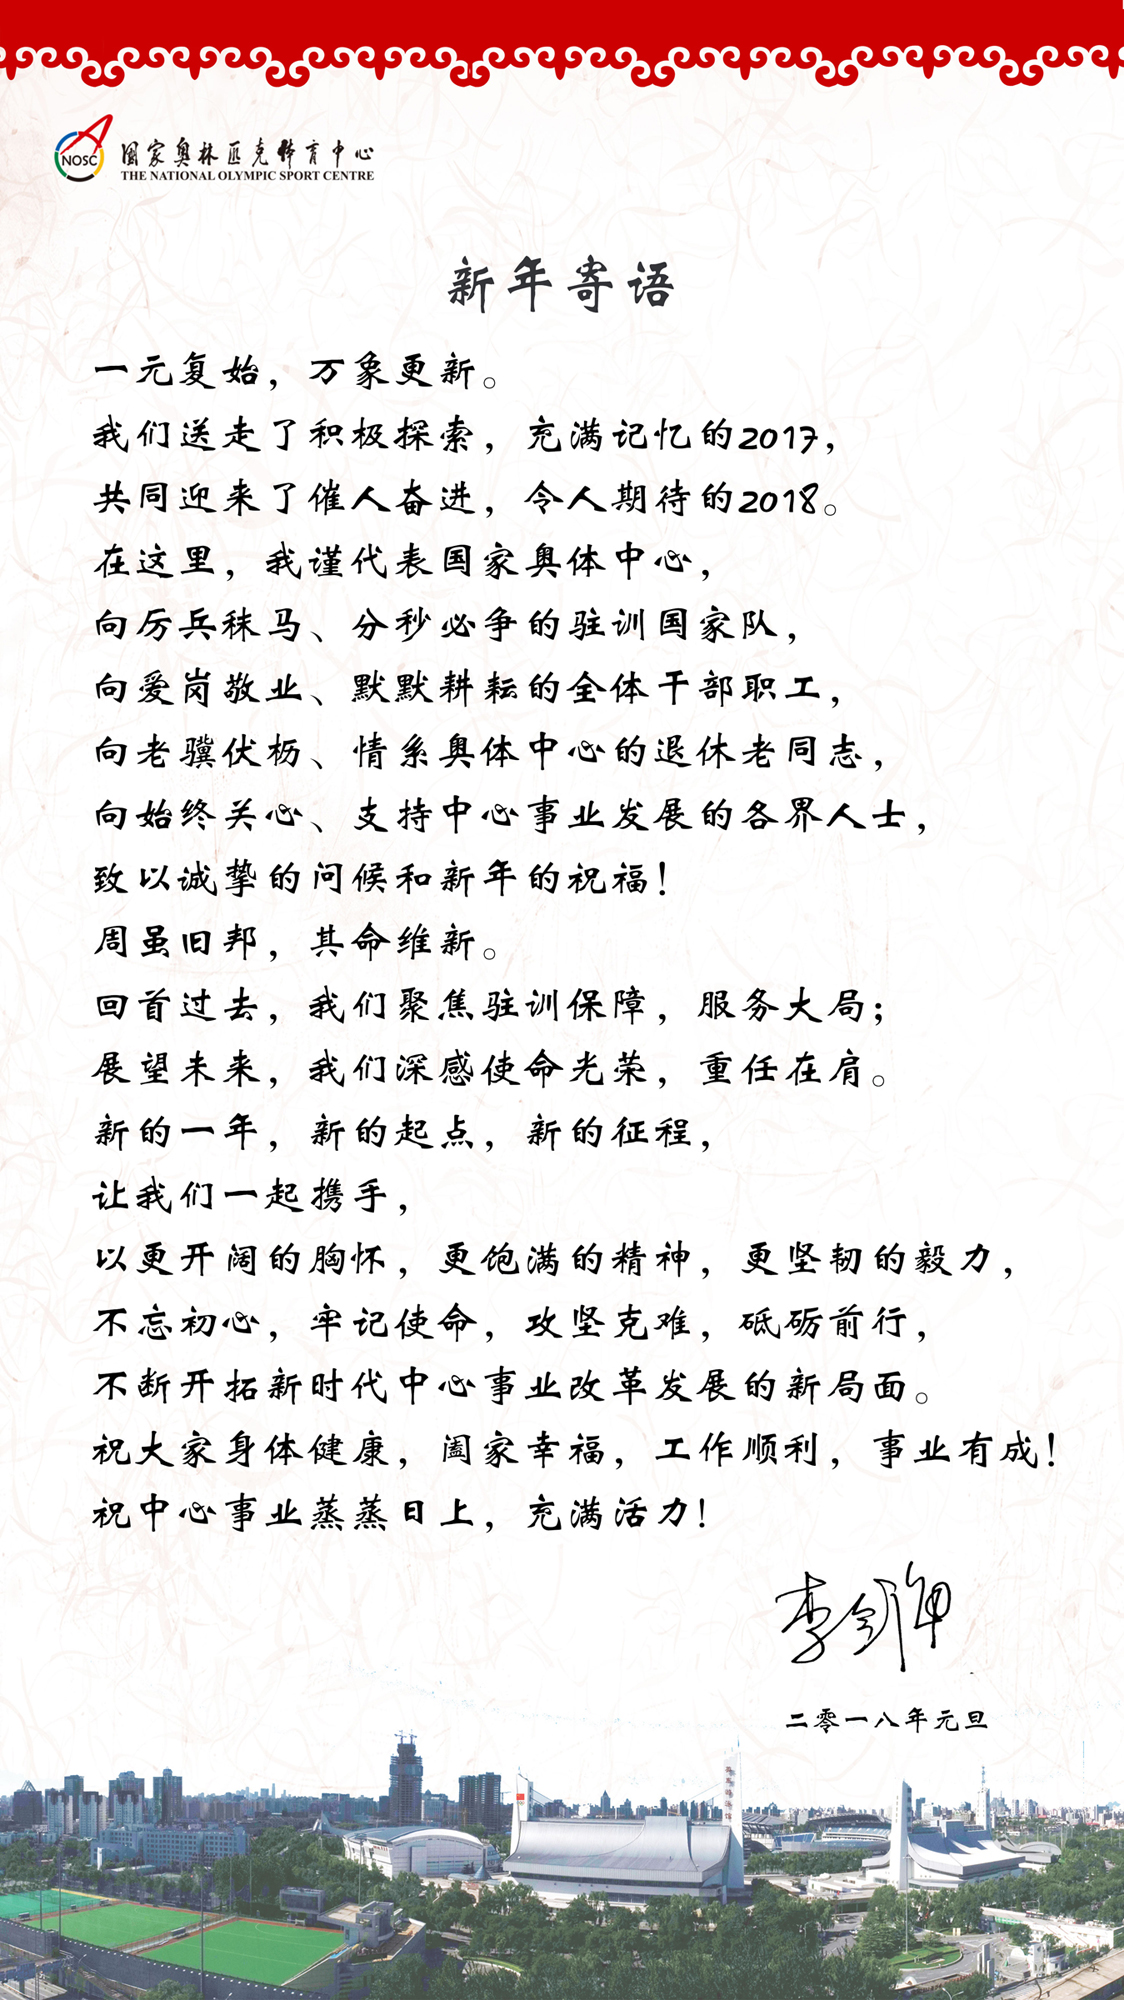 NOSC
国家奥林匹克体育中心
THE NATIONAL OLYMPIC SPORT CENTRE
新年寄语
一元复始，万象更新。
我们送走了积极探索，充满记忆的2017，
共同迎来了催人奋进，令人期待的2018。
在这里，我谨代表国家奥体中心，
向厉兵秣马、分秒必争的驻训国家队，
向爱岗敬业、默默耕耘的全体干部职工，
向老骥伏枥、情系奥体中心的退休老同志，
向始终关心、支持中心事业发展的各界人士，
致以诚挚的问候和新年的祝福！
周虽旧邦，其命维新。
回首过去，我们聚焦驻训保障，服务大局；
展望未来，我们深感使命光荣，重任在肩。
新的一年，新的起点，新的征程，
让我们一起携手，
以更开阔的胸怀，更饱满的精神，更坚韧的毅力，
不忘初心，牢记使命，攻坚克难，砥砺前行，
不断开拓新时代中心事业改革发展的新局面。
祝大家身体健康，阖家幸福，工作顺利，事业有成！
祝中心事业蒸蒸日上，充满活力！
二零一八年元旦